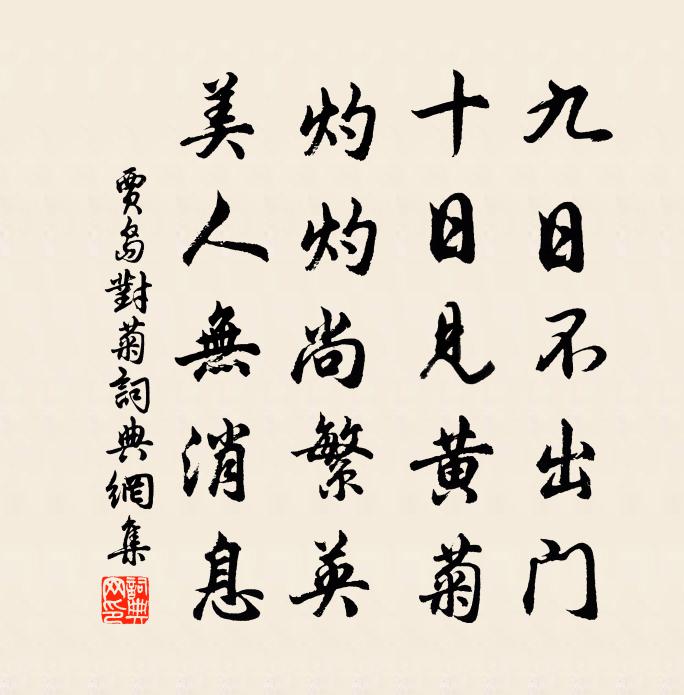 九日不出门
十日見黄菊
灼灼尚繁英
美人無消息
賈島對菊詞典網集
詞典网印